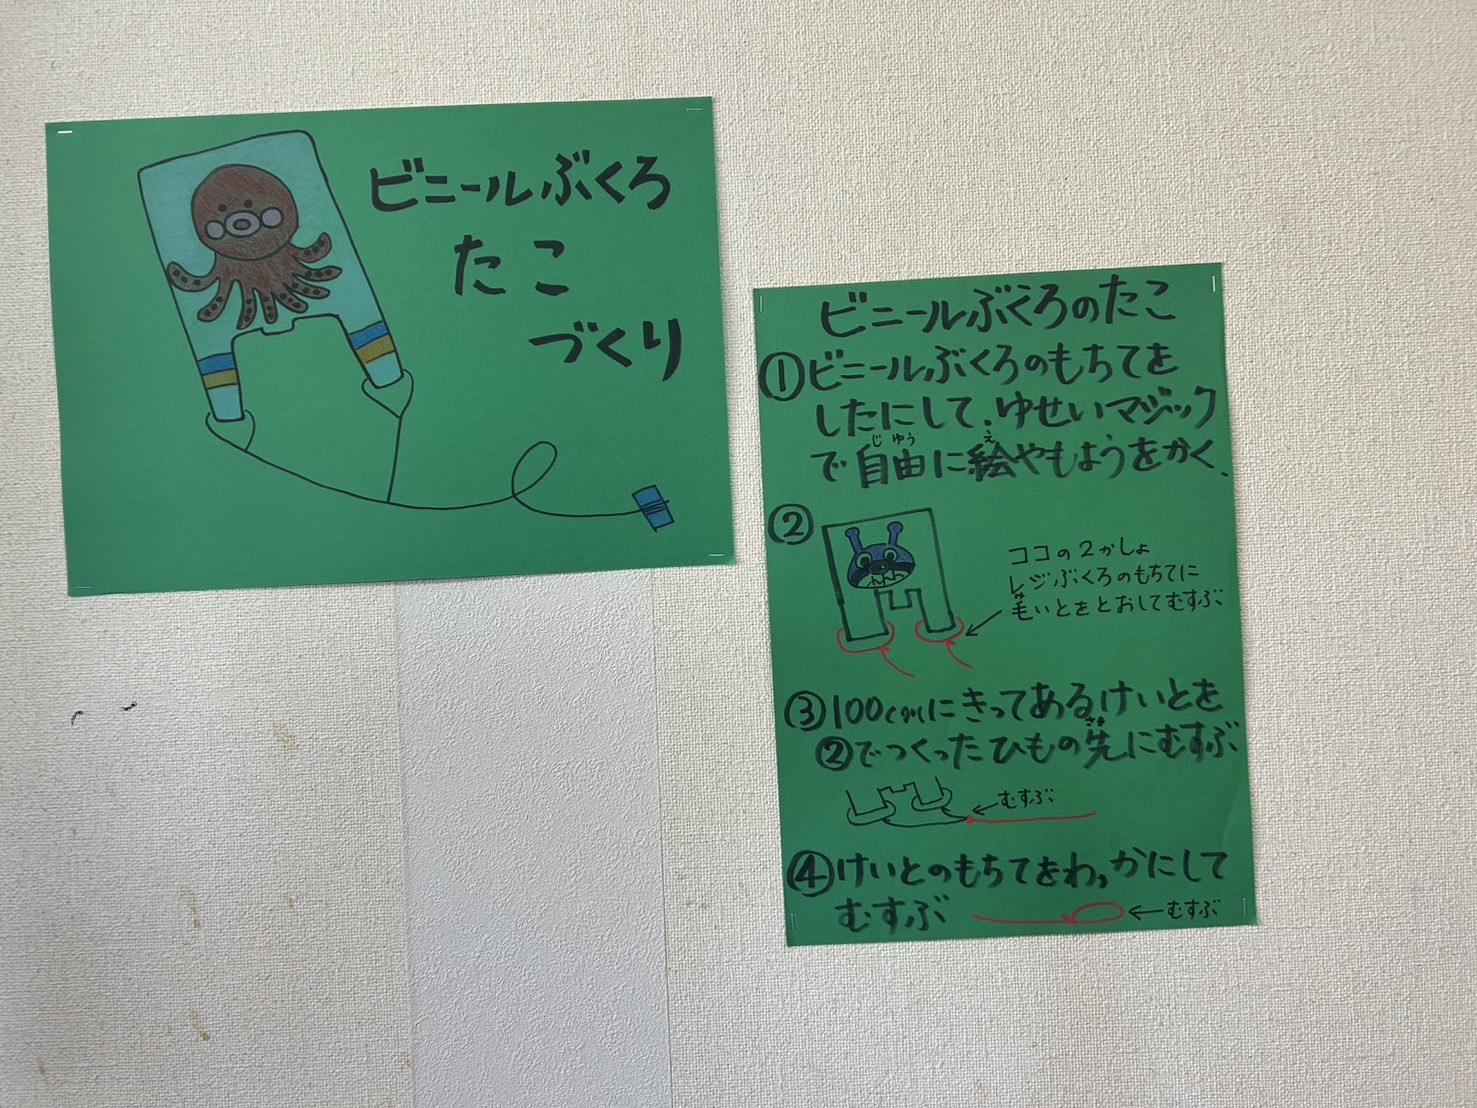 ビニールぶくろ
たこ
づくり
ビニールぶくろのたこ
①ビニールぶくろのもちてを
したにして、ゆせいマジック
じゆう え
で自由に絵やもようをかく、
②
ココの2かしょ
レジぶくろのもちてに
け
毛いとをとおしてむすぶ
③100cmにきってあるけいとを
さき
②でつくったひもの先にむすぶ
むすぶ
④けいとのもちてをわっかにして
むすぶ
むすぶ